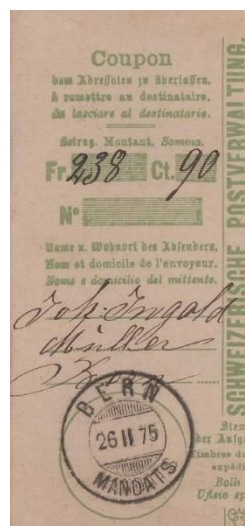 Coupon
dem Adressaten zu überlassen.
à remettre au destinataire.
da lasciare al destinatario.
Betrag. Montant. Somma.
Fr. 238 Ct. 90
Nº
Name u. Wohnort des Absenders.
Nom et domicile de l'envoyeur.
Nome e domicilio del mittente.
Joh. Ingold
Müller
BERN
26 II 75
MANDATS
SCHWEIZERISCHE POSTVERWALTUNG.
der Aufg
Timbres du
expéd
Bolli
Ufizio sp